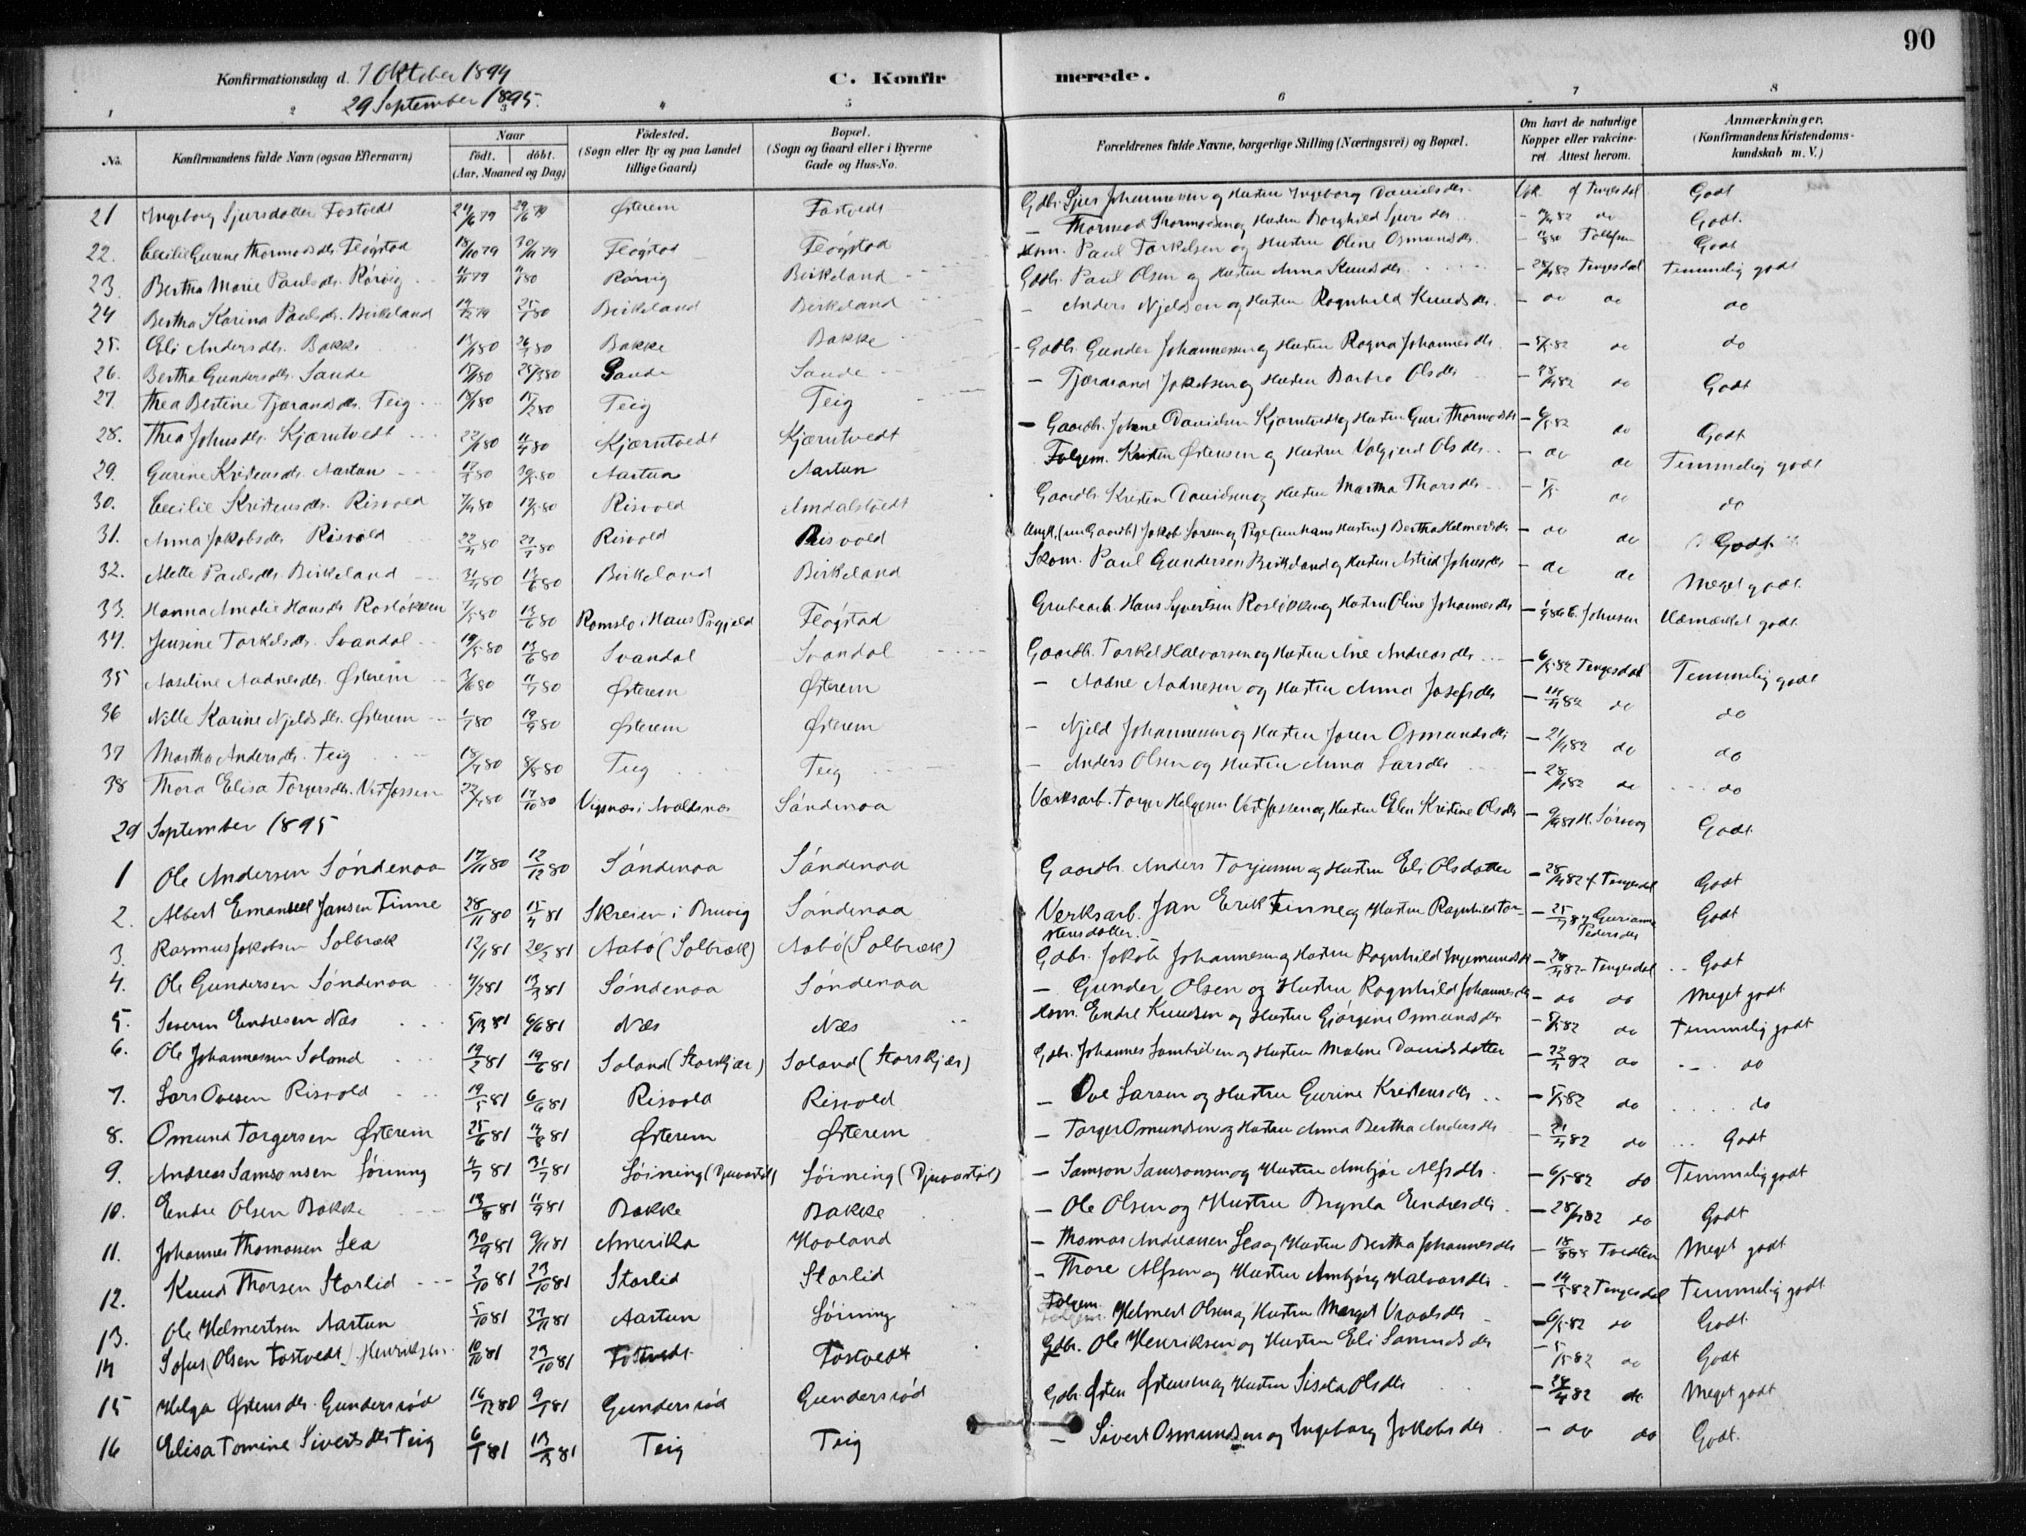 90
Konfirmationsdag d. 7 Oktober 1894
29 September 1895.
C. Konfirmerede.
1 2 3 4 5 6 7 8
No. Konfirmandens fulde Navn (ogsaa Efternavn) Naar födt. döbt. (Aar, Maaned og Dag) Födested. (Sogn eller By og paa Landet tillige Gaard) Bopæl. (Sogn og Gaard eller i Byerne Gade og Hus-No. Forældrenes fulde Navne, borgerlige Stilling (Næringsvei) og Bopæl. Om havt de naturlige Kopper eller vakcineret. Attest herom. Anmærkninger. (Konfirmandens Kristendomskundskab m. V.)
21 Ingeborg Sjursdatter Fostvedt 24/6 79 29/6 79 Østerem Fostvedt Gdbr. Sjur Johannesen og Hustru Ingeborg Danielsdtr. Vak. af Tengesdal Godt
22. Cecilie Gurine Thormodsdtr. Fløgstad 13/10 79 30/11 79 Fløgstad Fløgstad – Thormod Thormodsen og Hustru Borghild Sjursdtr. 82 do Godt.
23. Bertha Marie Paulsdtr. Rörvig 79 80 Rörvig Birkeland Hsm. Paul Torkelsen og Hustru Oline Osmundsdtr. 80 Tollefsen Godt
24 Bertha Karina Paulsdtr. Birkeland 79 25/1 80 Birkeland Birkeland Gdbr. Paul Olsen og Hustru Anna Knudsdtr. – 28/4 82 Tengesdal Temmelig godt
25. Eli Andersdtr. Bakke 13/1 80 26/1 80 Bakke Bakke – Anders Njeldsen og Hustru Ragnhild Knudsdtr. – do do do
26. Bertha Gundersdtr. Sande 80 80 Sande Sande – Gdbr. Gunder Johannesen og Hustru Ragna Johannesdtr. – 5/5 82 do do
27. Thea Bertine Tjærandsdtr. Teig 80 15/2 80 Teig Teig – Tjærand Jakobsen og Hustru Barbro Olsdtr – 28/4 82 do Godt
28. Thea Johnsdtr. Kjærntvedt 22/1 80 11/4 80 Kjærntvedt Kjærntvedt – Gaardbr. Johne Davidsen Kjærntvedt og Hustru Guri Thormodsdtr – 6/5 82 do Godt
29. Gurine Kristensdtr. Aartun 80 80 Aartun Aartun Folgem. Kristen Østensen og Hustru Valgjerd Olsdtr. – do do Temmelig godt
30. Cecilie Kristensdtr. Risvold 7/4 80 17/5 80 Risvold Amdalstvedt Gaardbr. Kristen Davidsen og Hustru Martha Thorsdtr – do do
31. Anna Jakobsdtr. Risvold 22/4 80 80 Risvold Risvold Ungk. (nu Gaardb.) Jakob Soren og Pige (nu hans Hustru) Bertha Helmersdtr – do do Godt
32. Mette Paulsdtr. Birkeland 80 13/6 80 Birkeland Birkeland Skom. Paul Gundersen Birkeland og Hustru Astrid Johnsdtr – do do Meget godt
33. Hanna Amalie Hansdtr. Rosløkken 7/5 80 13/6 80 Romslo i Haus Prgjeld Fløgstad Grubearb. Hans Syvertsen Rosløkken og Hustru Oline Johannesdtr Johnsen Udmærket godt
34. Jensine Torkelsdtr. Svandal 19/5 80 13/6 80 Svandal Svandal Gaardb. Torkel Halvorsen og Hustru Ane Andreasdtr – 6/5 82 Tengesdal Temmelig godt
35 Aaseline Aadnesdtr. Østerem 3/6 80 11/7 80 Østerem Østerem – Aadne Aadnesen og Hustru Anna Josefsdtr – 82 do do
36 Nille Karine Njeldsdtr. Østerem 1/7 80 19/9 80 Østerem Østerem – Njeld Johannesen og Hustru Joren Osmundsdtr – 21/4 82 do do
37 Martha Andersdtr. Teig 18/7 80 8/8 80 Teig Teig – Anders Olsen og Hustru Anna Larsdtr – 28/4 82 do do
38 Thora Elisa Torgersdtr. Vestfossen 80 17/10 80 Vigsnæs i Avaldsnæs Söndenaa Værksarb. Torger Helgesen Vestfossen og Hustru Elen Kristine Olsdtr – 9/9 81 H. Sörvaag Godt
29 September 1895
1 Ole Andersen Söndenaa 17/11 80 12/12 80 Söndenaa Söndenaa Gaardbr. Anders Torjussen og Hustru Eli Olsdatter – 28/4 82 f. Tengesdal Godt
2. Albert Emanuel Jansen Finne 28/11 80 15/4 81 Skreien i Bruvig Söndenaa Verksarb. Jan Erik Finne og Hustru Ragnhild Torstensdatter. – 25/7 87 Gurianna Pedersdtr Godt
3. Rasmus Jakobsen Solbræk 12/1 81 20/2 81 Aabö (Solbræk) Aabö (Solbræk) Gdbr. Jakob Johannesen og Hustru Ragnhild Ingemundsdtr – 28/4 82 Tengesdal Godt
4. Ole Gundersen Söndenaa 4/2 81 13/3 81 Söndenaa Söndenaa – Gunder Olsen og Hustru Ragnhild Johannesdtr – do do Meget godt
5. Severin Endresen Næs 5/3 81 6/6 81 Næs Næs Hsm. Endre Knudsen og Hustru Gjørgine Osmundsdtr – 5/5 82 do Temmelig godt
6. Ole Johannessen Soland 19/2 81 19/6 81 Soland (Storskjær) Soland (Storskjær) Gdbr. Johannes Lambretsen og Hustru Malene Davidsdatter – 22/4 82 do do
7. Lars Ovesen Risvold 19/5 81 6/6 81 Risvold Risvold – Ove Larsen og Hustru Gurine Kristensdtr – 5/5 82 do do
8. Osmund Torgersen Østerem 25/6 81 14/8 81 Østerem Østerem – Torger Osmundsen og Hustru Anna Bertha Andersdtr – 21/4 82 do Godt
9. Andreas Samsonsen Söining 4/7 81 31/7 81 Söining (Djuvastöl) Söining (Djuvastöl) – Samson Samsonsen og Hustru Ambjør Alfsdtr. – 6/5 82 do Temmelig godt
10. Endre Olsen Bakke 13/8 81 11/9 81 Bakke Bakke – Ole Olsen og Hustru Brynla Endresdtr. – 28/4 82 do Godt
11. Johannes Thomassen Lea 30/9 81 9/11 81 Amerika Hovland – Thomas Andreassen Lea og Hustru Bertha Johannesdtr – 18/8 88 Tvedten Meget godt
12. Knud Thorsen Storlid 2/10 81 23/10 81 Storlid Storlid – Thore Alfsen og Hustru Ambjørg Halvorsdtr. – 14/5 82 Tengesdal Temmelig godt
13. Ole Helmertsen Aartun 5/10 81 27/11 81 Aartun Söining Folgem. Helmert Olsen og Hustru Marget Vraalsdtr – 6/5 82 do Godt
14 Sofus (Olsen Fostvedt) Henriksen 10/10 81 23/10 81 Fostvedt Fostvedt Gdbr. Ole Henriksen og Hustru Eli Samundsdtr – 5/5 82 do Godt
15 Helga Østensdtr. Gundersröd 16/12 80 9/1 81 Gundersröd Gundersröd Gdbr. Østen Østensen og Hustru Siseta Olsdtr – 82 do Meget godt
16 Elisa Tomine Sivertsdtr Teig 6/1 81 13/3 81 Teig Teig – Sivert Osmundsen og Ingeborg Jakobsdtr – do do Godt.